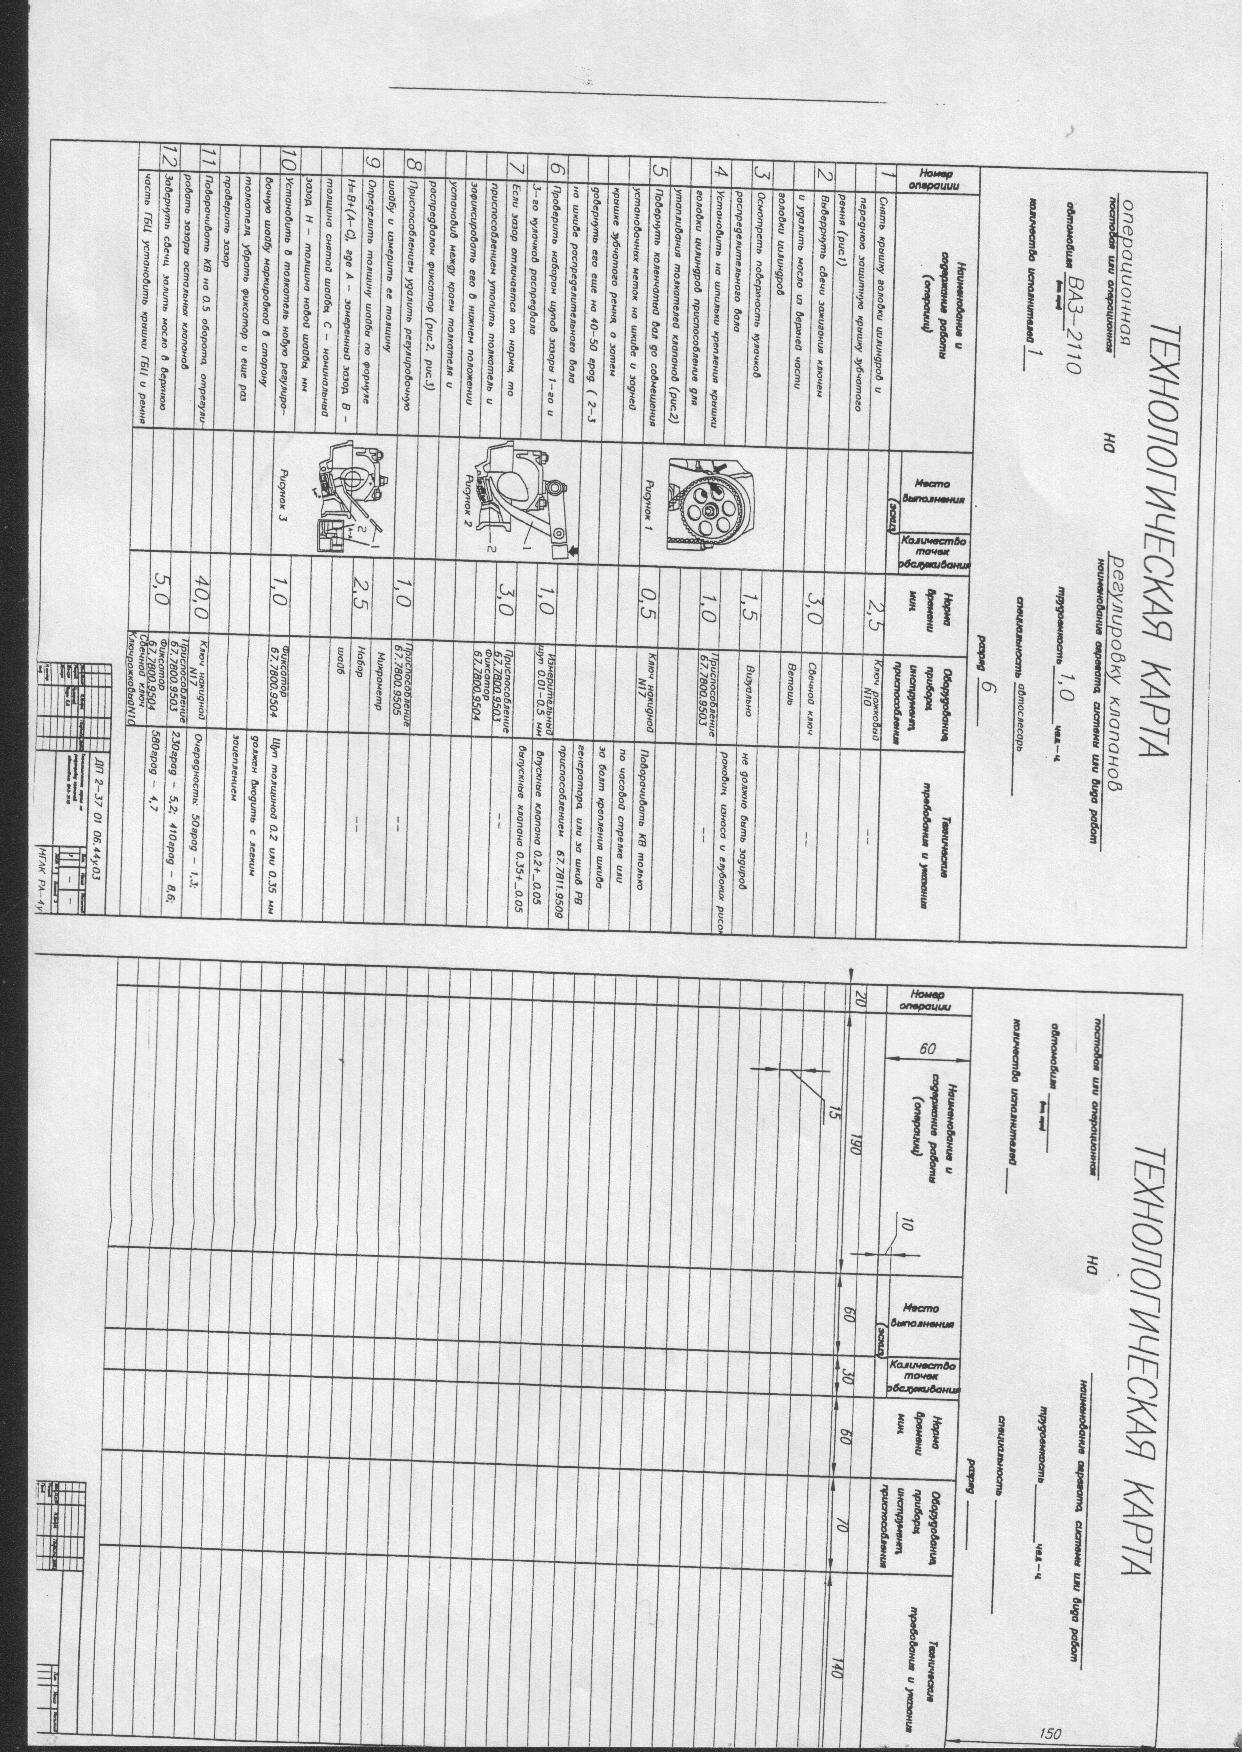 ТЕХНОЛОГИЧЕСКАЯ КАРТА
операционная
постовая или операционная
на
регулировку клапанов
наименование агрегата, системы или вида работ
автомобиля ВАЗ-2110
трудоемкость 1,0 чел-ч.
количества исполнителей 1
специальность автослесарь
разряд 6
Номер операции
Наименование и содержание работы (операции)
Место выполнения (эскиз)
Количество точек обслуживания
Норма времени мин.
Оборудование, приборы, инструмент, приспособления
Технические требования и указания
1
Снять крышку головки цилиндров и
переднюю защитную крышку зубчатого
ремня (рис.1)
2,5
Ключ рожковый
N10
--
2
Вывернуть свечи зажигания ключем
и удалить масло из верхней части
головки цилиндров
3,0
Свечной ключ
Ветошь
--
3
Осмотреть поверхность кулачков
распределительного вала
1,5
Визуально
не должно быть задиров
раковин, износа и глубоких рисок
4
Установить на шпильки крепления крышки
головки цилиндров приспособление для
утапливания толкателей клапанов (рис.2)
1,0
Приспособление
67.7800.9503
--
5
Повернуть коленчатый вал до совмещения
установочных меток на шкиве и задней
крышке зубчатого ремня, а затем
довернуть его еще на 40-50 град ( 2-3
на шкиве распределительного вала
Рисунок 1
0,5
Ключ накидной
N17
Поворачивать КВ только
по часовой стрелке или
за болт крепления шкива
генератора, или за шкив РВ
приспособлением 67.7811.9509
6
Проверить набором щупов зазоры 1-го и
3-го кулачков распредвала
1,0
Измерительный
щуп 0.01-0.5 мм
впускные клапана 0.2+_0.05
выпускные клапана 0.35+_0.05
7
Если зазор отличается от нормы, то
приспособлением утопить толкатель и
зафиксировать его в нижнем положении
установив между краем толкателя и
распредвалом фиксатор (рис.2, рис.3)
1
2
Рисунок 2
3,0
Приспособление
67.7800.9503
Фиксатор
67.7800.9504
--
8
Приспособлением удалить регулировочную
шайбу и измерить ее толщину
1,0
Приспособление
67.7800.9505
Микрометр
--
9
Определить толщину шайбы по формуле
Н=В+(А-С), где А - замеренный зазор, В -
толщина снятой шайбы, С - номинальный
зазор, Н - толщина новой шайбы, мм
1
2
А-А
Рисунок 3
2,5
Набор
шайб
--
10
Установить в толкатель новую регулиро-
вочную шайбу маркировкой в сторону
толкателя, убрать фиксатор и еще раз
проверить зазор
1,0
Фиксатор
67.7800.9504
Щуп толщиной 0.2 или 0.35 мм
должен входить с легким
зацеплением
11
Поворачивать КВ на 0.5 оборота, отрегули-
ровать зазоры остальных клапанов
40,0
Ключ накидной
N17
Приспособление
67.7800.9503
Фиксатор
67.7800.9504
Очередность: 50град - 1,3;
230град - 5,2; 410град - 8,6;
580град - 4,7
12
Завернуть свечи, залить масло в верхнюю
часть ГБЦ, установить крышки ГБЦ и ремня
5,0
Свечной ключ
КлючрожковыйN10
ДП 2-37 01 06.44у.03
МГАК РА-4у
ТЕХНОЛОГИЧЕСКАЯ КАРТА
постовая или операционная
на
наименование агрегата, системы или вида работ
автомобиля
трудоемкость чел-ч.
количества исполнителей
специальность
разряд
150
Номер операции
Наименование и содержание работы (операции)
Место выполнения (эскиз)
Количество точек обслуживания
Норма времени мин.
Оборудование, приборы, инструмент, приспособления
Технические требования и указания
60
10
20
190
60
30
60
70
140
15